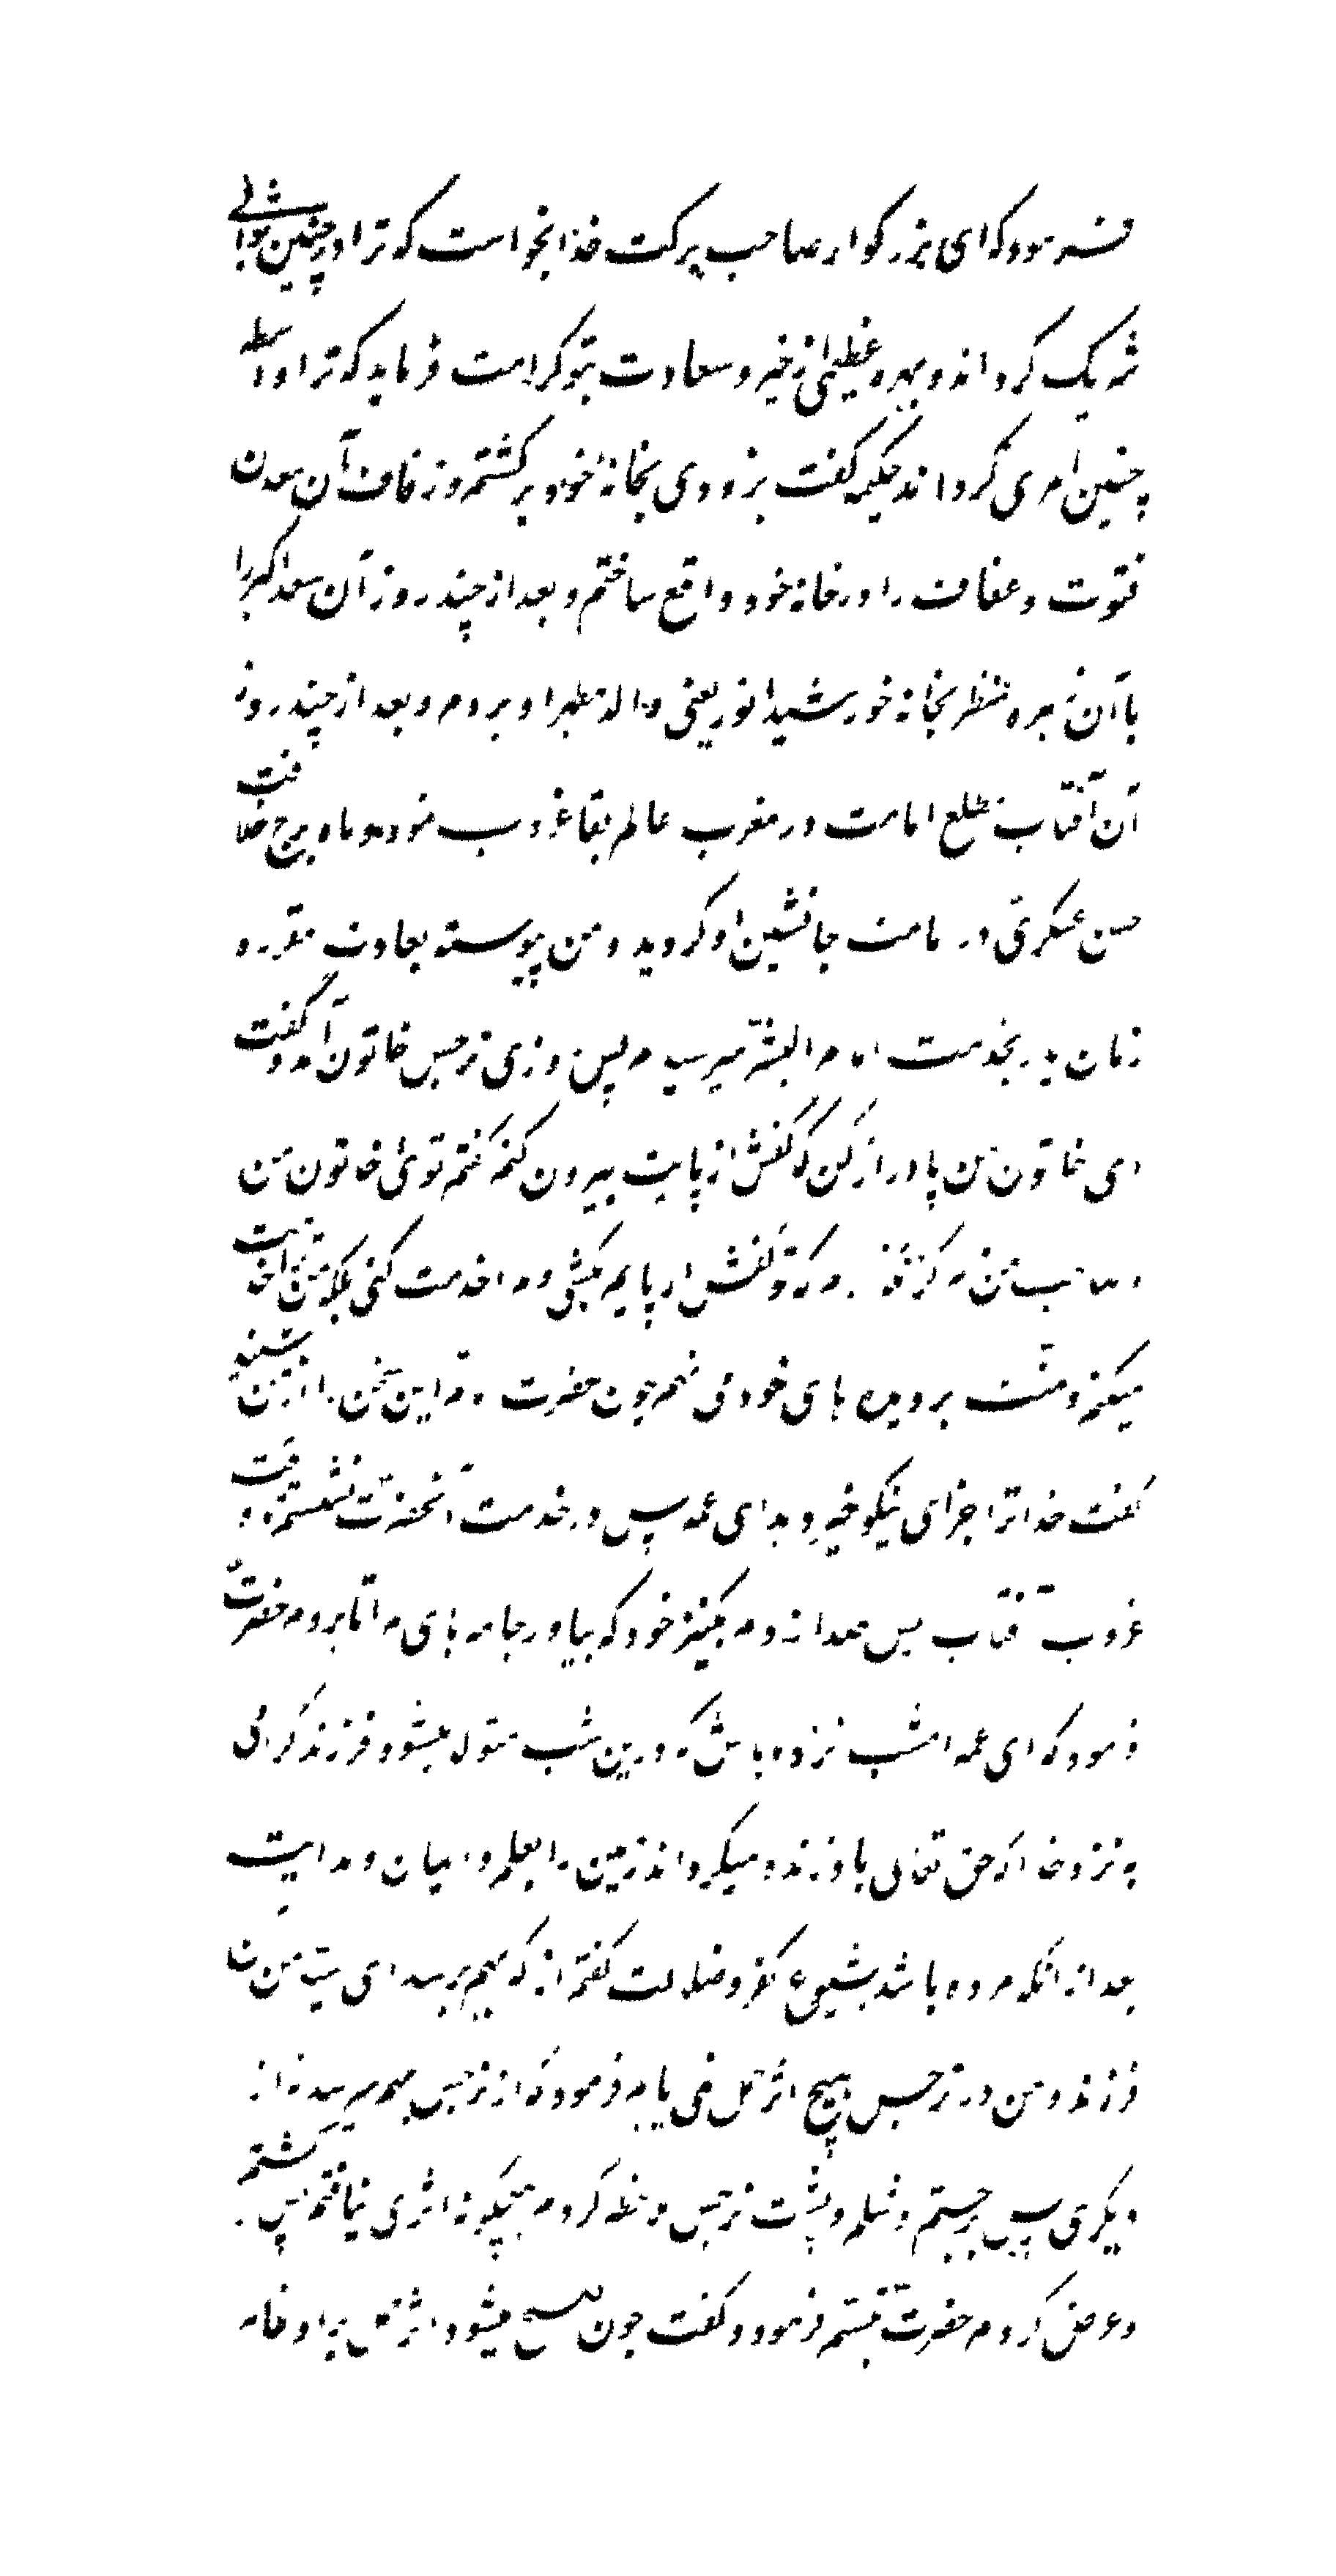 فرمود که ای بزرگوار صاحب برکت خدا بخواست که ترا در چنین ثوابی
شریک گرداند و بهره عظیمی از خیر و سعادت بتو کرامت فرماید که ترا واسطه
چنین امری گرداند حکیمه گفت بزودی بخانه خود برگشتم و زفاف آن معدن
فتوت و عفاف را در خانه خود واقع ساختم و بعد از چند روز آن سعد اکبر را
با آن زهره منظر بخانه خورشید انور یعنی والد مطهر او بردم و بعد از چند روز
آن آفتاب مطلع امامت در مغرب عالم بقا غروب نمود و ماه برج خلافت
حسن عسکری در امامت جانشین او گردید و من پیوسته بعادت مقرره
زمان پدر بخدمت امام البشر میرسیدم پس روزی نرجس خاتون آمد و گفت
ای خاتون من پا دراز کن که کفش از پایت بیرون کنم گفتم توئی خاتون من
و صاحب من هرگز نگذارم که تو کفش از پایم بکشی و مرا خدمت کنی بلکه من ترا خدمت
میکنم و منت بر دیده های خود می نهم چون حضرت این سخن را از من شنید
گفت خدا ترا جزای نیکو خیر دهد ای عمه پس در خدمت آنحضرت نشستم تا وقت
غروب آفتاب پس صدا زدم بکنیز خود که بیاور جامه های مرا تا بروم حضرت
فرمود که ای عمه امشب نزد ما باش که درین شب متولد میشود فرزند گرامی
بر نزد خدا که حق تعالی باو زنده میگرداند زمین را بعلم و ایمان و هدایت
بعد از آنکه مرده باشد بشیوع کفر و ضلالت گفتم از که بهم میرسد ای سید من آن
فرزند و من در نرجس هیچ اثر حمل نمی یابم فرمود که از نرجس بهم میرسد نه از
دیگری پس برجستم و شکم و پشت نرجس ملاحظه کردم هیچگونه اثری نیافتم پس برگشتم
و عرض کردم حضرت تبسم فرمود و گفت چون صبح میشود اثر حمل بر او ظاهر